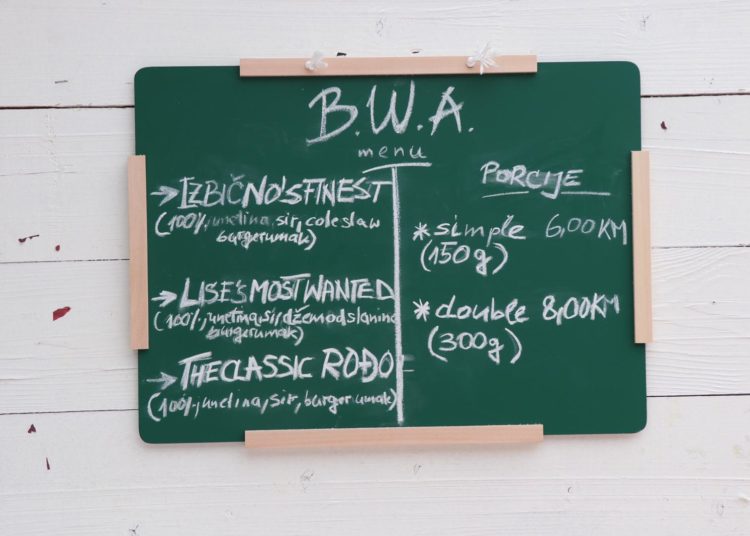 B.W.A.
menu
→ IZBIČNO'S FINEST
(100% junetina, sir, coleslaw
burger umak)
→ LISE'S MOST WANTED
(100% junetina, sir, džem od slanine
burger umak)
→ THE CLASSIC ROĐO
(100% junetina, sir, burger umak)
PORCIJE
* simple 6,00 KM
(150g)
* double 8,00 KM
(300g)